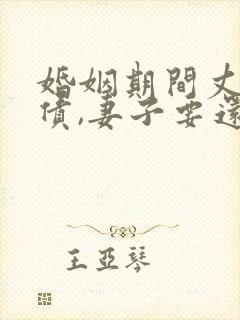 婚姻期間丈
債,妻子要還
王亞琴